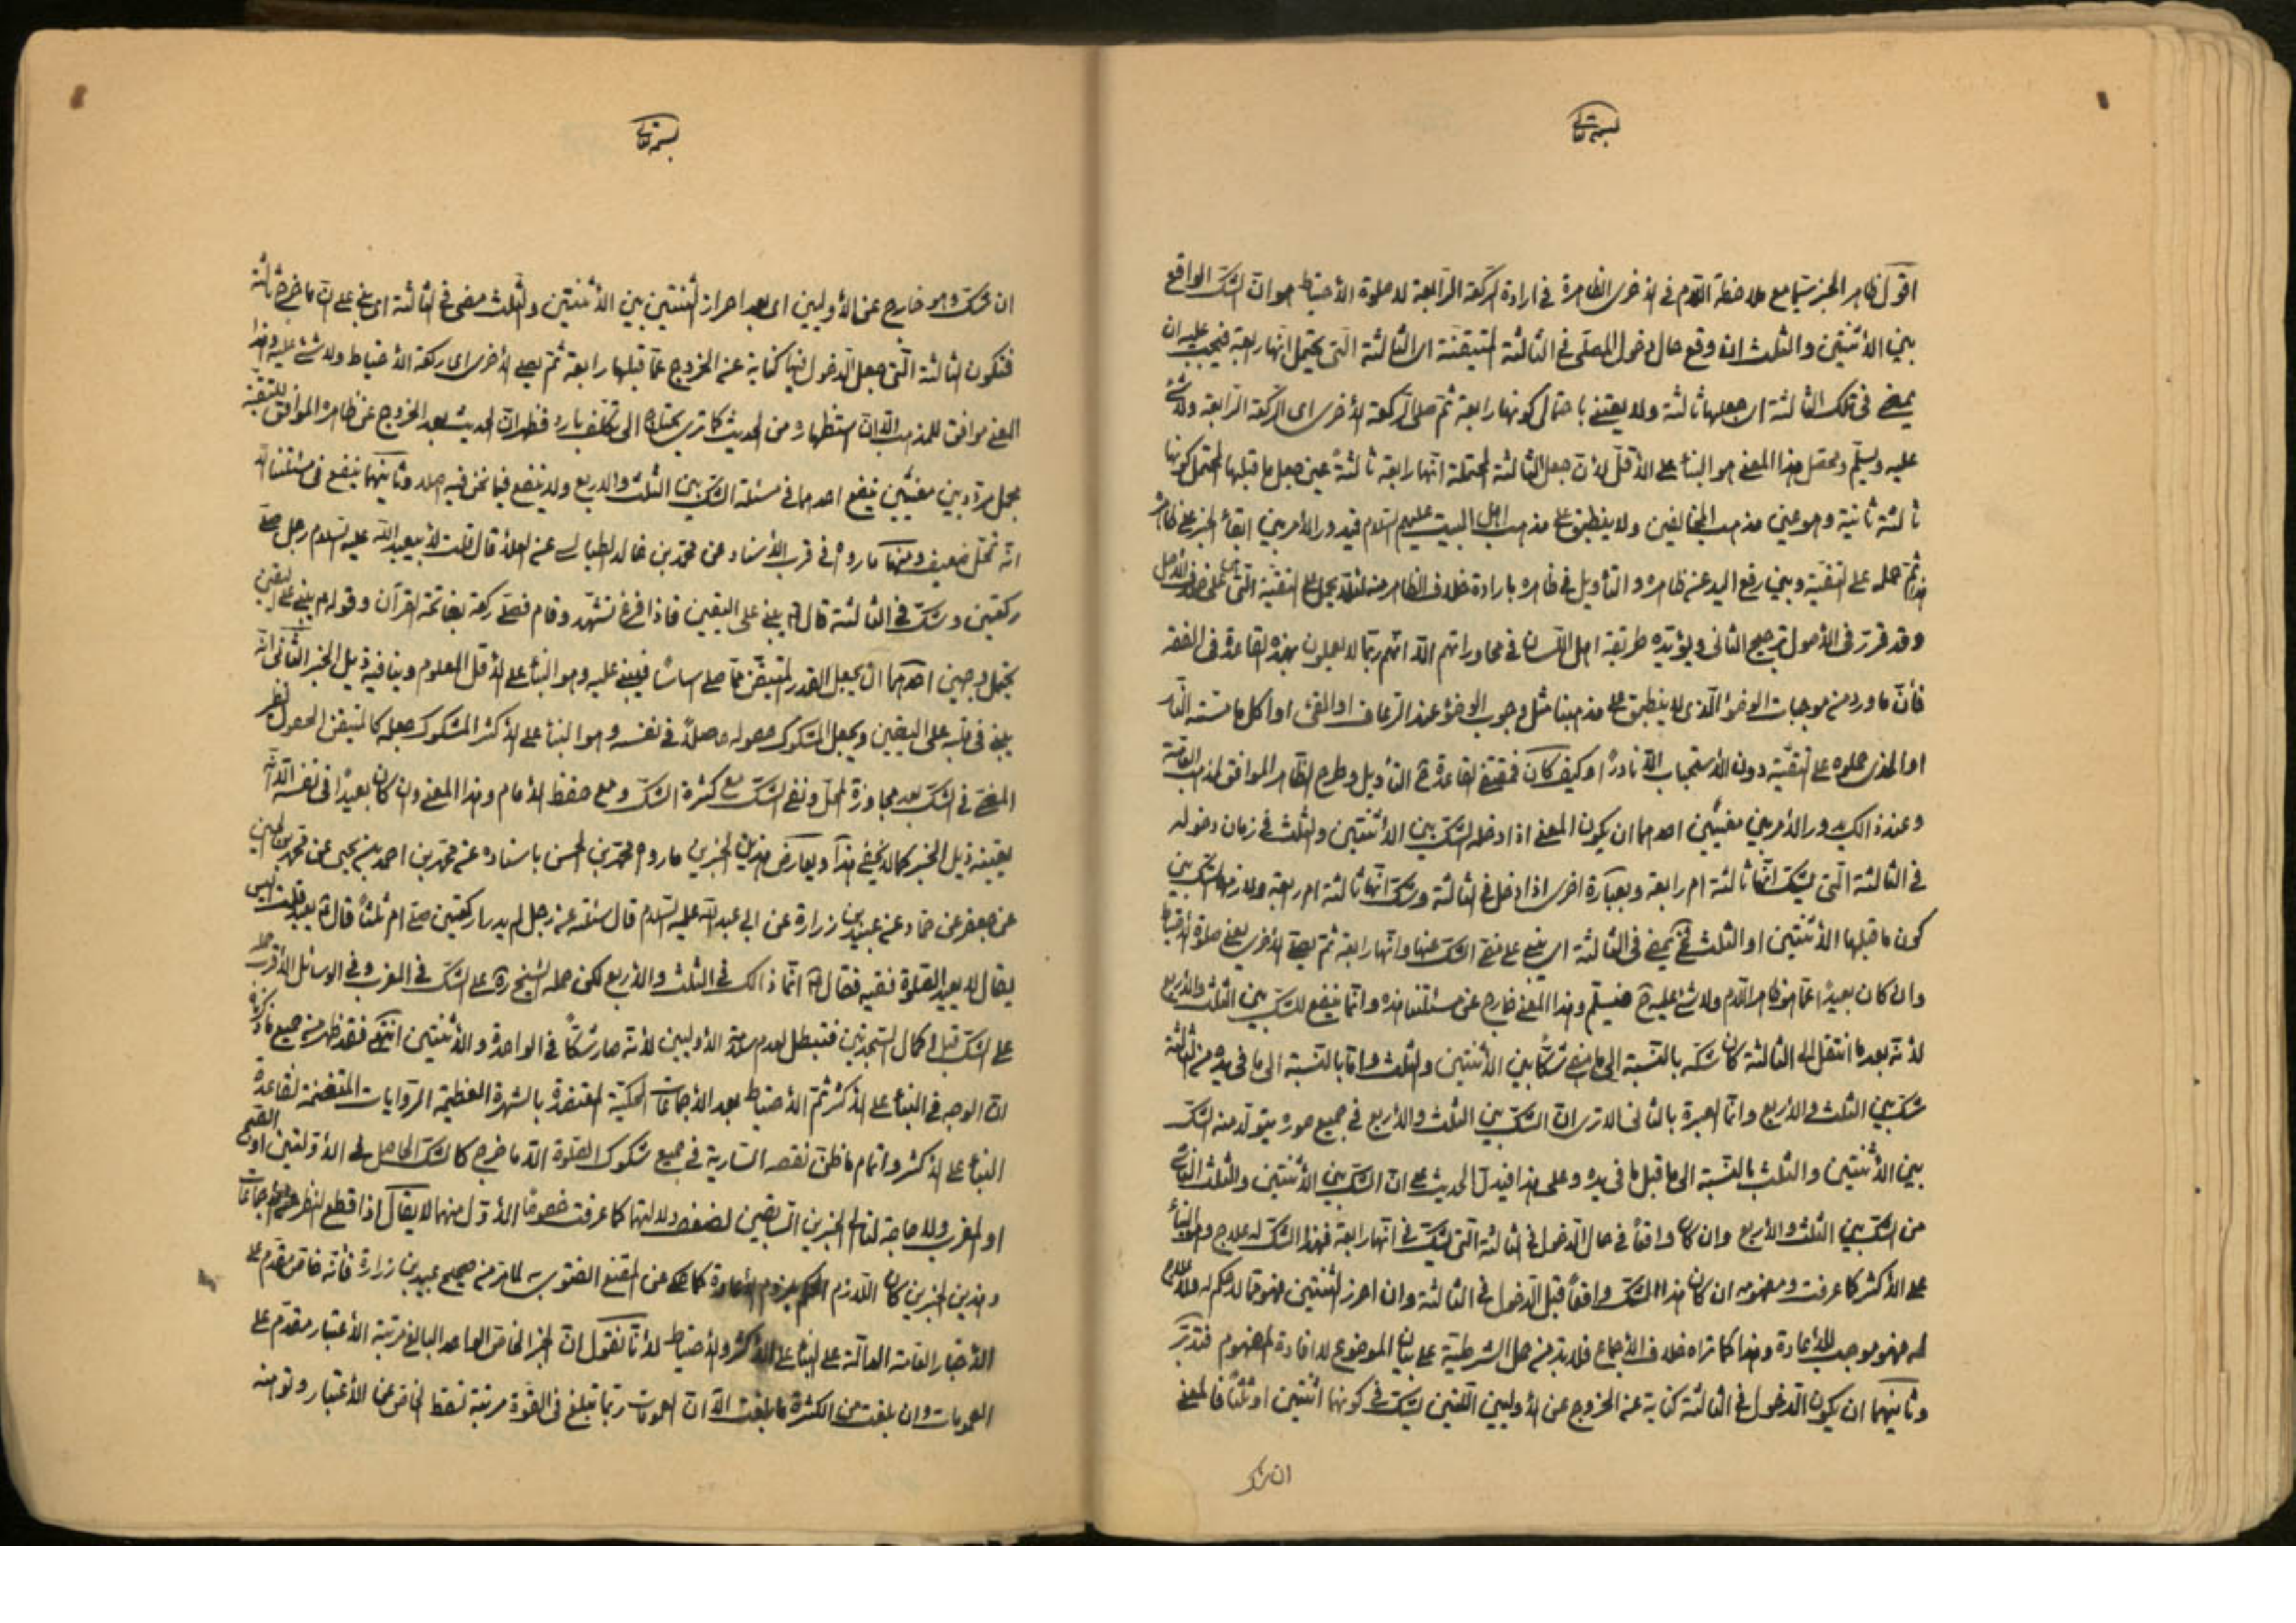 بسمه تعالى
اقول ظاهر الخبر سيما مع ملاحظة اللام في الأخرى الظاهرة في ارادة الركعة الرابعة لا صلوة الأحتياط هو ان الشك الواقع
بين الأثنتين والثلث ان وقع حال دخول المصلى في الثالثة المتيقنة اى الثالثة التى يحتمل انها رابعة فيجب عليه ان
يمضى في تلك الثالثة اى جعلها ثالثة ولا يعتنى باحتمال كونها رابعة ثم صلى الركعة الأخرى اى الركعة الرابعة ولا شئ
عليه ويسلم ومحصل هذا المعنى هو البناء على الأقل لأن جعل الثالثة المحتملة انها رابعة ثالثة عين جعل ما قبلها المحتمل كونها
ثالثة ثانية وهو عين مذهب المخالفين ولا ينطبق على مذهب اهل البيت عليهم السلام فيدور الأمر بين ابقاء الخبر على ظاهره
ثم حمله على التقية وبين رفع اليد عن ظاهره والتأويل في ظاهره بارادة خلاف الظاهر منه لئلا يحمل على التقية التى هى على خلاف الأصل
وقد قرر في الأصول ترجيح الثانى ويؤيده طريقة اهل اللسان في محاوراتهم الا انهم ربما لا يعملون بهذه القاعدة في الفقه
فأن ما ورد من موجبات الوضوء الذى لا ينطبق على مذهبنا مثل وجوب الوضوء عند الرعاف او القئ او اكل ما مسته النار
او المذى حملوه على التقية دون الأستحباب الا نادرا وكيف كان فمقتضى القاعدة ح التأويل وطرح الظاهر الموافق لمذهب العامة
وعند ذلك يدور الأمر بين معنيين احدهما ان يكون المعنى اذا دخله الشك بين الأثنتين والثلث في زمان دخوله
في الثالثة التى يشك انها ثالثة ام رابعة وبعبارة اخرى اذا دخل في الثالثة وشك انها ثالثة ام رابعة ولازمها الشك بين
كون ما قبلها الأثنتين او الثلث فح يمضى في الثالثة اى يبنى على مضى الشك عنها وانها رابعة ثم يصلى الأخرى يعنى صلوة الأحتياط
وان كان بعيدا عما هو ظاهر اللام ولا شئ عليه ح فيسلم وهذا المعنى خارج عن مسئلتنا هذه وانما ينفع للشك بين الثلث والأربع
لأنه بعد ما انتقل الى الثالثة كان شكه بالنسبة الى ما مضى شكا بين الأثنتين والثلث واما بالنسبة الى ما في يده من الثالثة
شك بين الثلث والأربع وانما العبرة بالثانى الا ترى ان الشك بين الثلث والأربع في جميع صوره يتولد منه الشك
بين الأثنتين والثلث بالنسبة الى ما قبل ما في يده وعلى هذا فيدل الحديث على ان الشك بين الأثنتين والثلث الناشئ
من الشك بين الثلث والأربع وان كان واقعا في حال الدخول في الثالثة التى يشك في انها رابعة فهذا الشك له علاج وهو البناء
على الأكثر كما عرفت ومفهومه ان كان هذا الشك واقعا قبل الدخول في الثالثة وان احرز الثنتين فهو مما لا حكم له ولا علاج
له فهو موجب للأعادة وهذا كما تراه خلاف الأجماع فلا بد من حمل الشرطية على بيان الموضوع لا افادة المفهوم فتدبر
وثانيهما ان يكون الدخول في الثالثة كناية عن الخروج عن الأوليين اللتين يشك في كونهما اثنتين او ثلثا فالمعنى
ان شك
بسمه تعالى
ان شك وهو خارج عن الأوليين اى بعد احراز الثنتين بين الأثنتين والثلث مضى في الثالثة اى بنى على ان ما خرج ثالثة
فتكون الثالثة التى جعل الدخول فيها كناية عن الخروج عما قبلها رابعة ثم يصلى الأخرى اى ركعة الأحتياط ولا شئ عليه وهذا
المعنى موافق للمذهب الا ان استظهاره من الحديث كما ترى يحتاج الى تكلف بارد فظهر ان الحديث بعد الخروج عن ظاهره الموافق للتقية
مجمل مردد بين معنيين ينفع احدهما في مسئلة الشك بين الثلث والاربع ولا ينفع فيما نحن فيه اصلا وثانيهما ينفع في مسئلتنا الا
انه محتمل ضعيف ومنها ما رواه في قرب الأسناد عن محمد بن خالد الطيالسى عن العلاء قال قلت لأبيعبد الله عليه السلام رجل صلى
ركعتين وشك في الثالثة قال ع يبنى على اليقين فاذا فرغ تشهد وقام فصلى ركعة بفاتحة القرآن وقوله ع يبنى على اليقين
يحتمل وجهين احدهما ان يجعل القدر المتيقن مما صلى اساسا فيبنى عليه وهو البناء على الأقل المعلوم وينافيه ذيل الخبر الثانى انه
يبنى في قلبه على اليقين ويجعل المشكوك حصوله حاصلا في نفسه وهو البناء على الأكثر المشكوك جعله كالمتيقن الحصول نظير
المضى في الشك بعد مجاوزة المحل ونفى الشك مع كثرة الشك ومع حفظ الأمام وهذا المعنى وان كان بعيدا في نفسه الا انه
يعينه ذيل الخبر كما لا يخفى هذا ويعارض هذين الخبرين ما رواه محمد بن الحسن باسناده عن محمد بن احمد بن يحيى عن محمد بن الحسين
عن جعفر عن حماد عن عبيد بن زرارة عن ابي عبد الله عليه السلام قال سئلته عن رجل لم يدر اركعتين صلى ام ثلثا قال ع يعيد قلت اليس
يقال لا يعيد الصلوة فقيه فقال ع انما ذالك في الثلث والأربع لكن حمله الشيخ ره على الشك في المغرب وفى الوسائل الأقرب حمله
على الشك قبل اكمال السجدتين فتبطل لعدم سلامة الأوليين لأنه صار شكا في الواحدة والأثنتين انتهى فقد ظهر من جميع ما ذكرنا
ان الوجه في البناء على الأكثر ثم الأحتياط بعد الأجماعات المحكية المعتضدة بالشهرة العظيمة الروايات المتضمنة لقاعدة
البناء على الأكثر واتمام ما ظن نقصه السارية في جميع شكوك الصلوة الا ما خرج كالشك الحاصل في الأولتين او الصبح
او المغرب ولا حاجة لنا الى الخبرين السابقين لضعف دلالتهما كما عرفت خصوصا الأول منهما لا يقال اذا قطع النظر عن الأجماعات
وهذين الخبرين كان اللازم الحكم بلزوم الأعادة كما حكى عن المقنع الفتوى به لما مر من صحيح عبيد بن زرارة فأنه خاص مقدم على
الأخبار العامة الدالة على البناء على الأكثر والأحتياط لأنا نقول ان الخبر الخاص الواحد البالغ مرتبة الأعتبار مقدم على
العمومات وان بلغت من الكثرة ما بلغت الا ان العمومات ربما تبلغ في القوة مرتبة تسقط الخاص عن الأعتبار وتوهنه